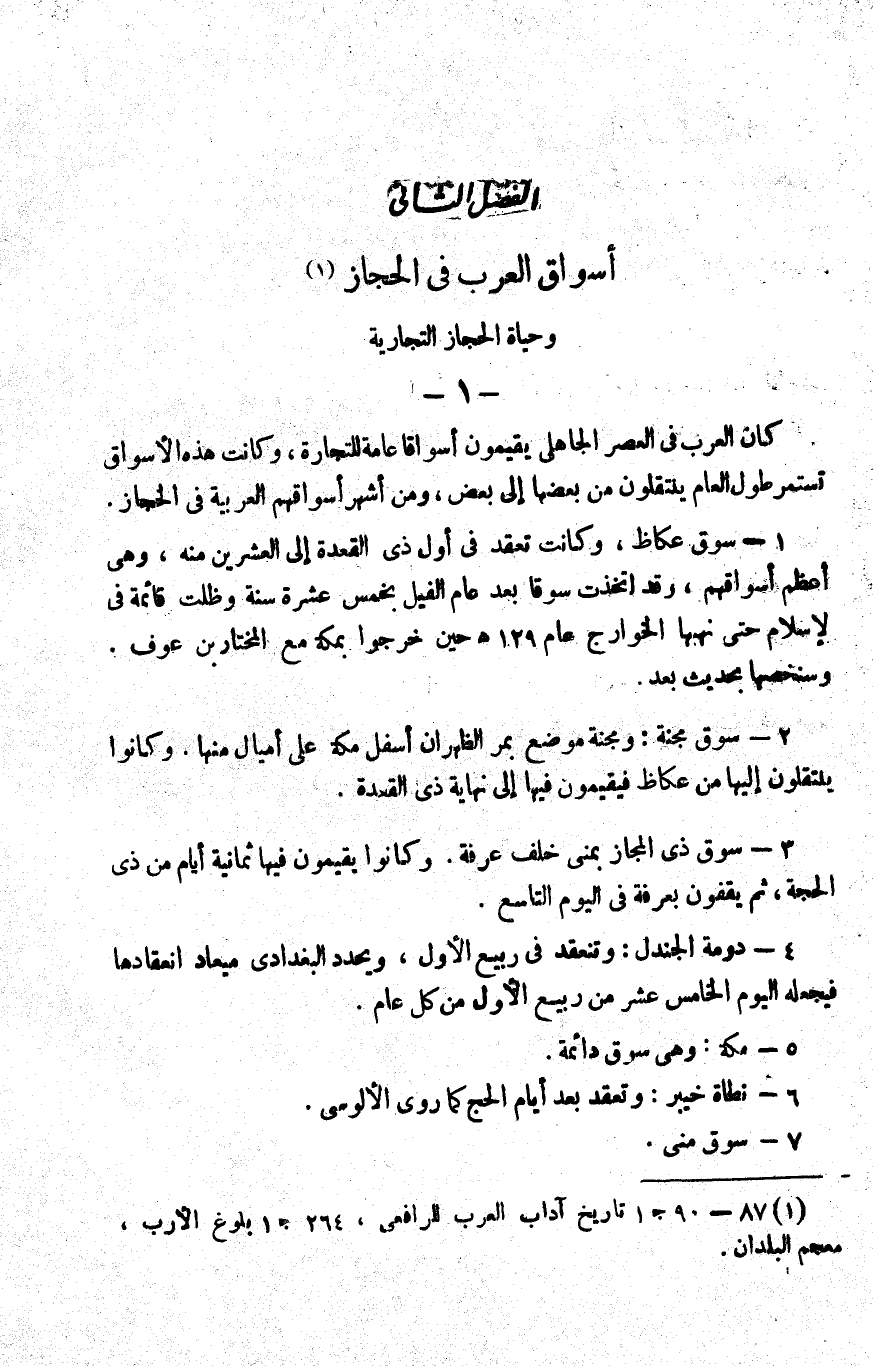 الفصل الثانى
أسواق العرب فى الحجاز (١)
وحياة الحجاز التجارية
– ١ –
كان العرب فى العصر الجاهلى يقيمون أسواقا عامة للتجارة ، وكانت هذه الأسواق
تستمر طول العام ينتقلون من بعضها إلى بعض ، ومن أشهر أسواقهم العربية فى الحجاز .
١ – سوق عكاظ ، وكانت تعقد فى أول ذى القعدة إلى العشرين منه ، وهى
أعظم أسواقهم ، وقد اتخذت سوقا بعد عام الفيل بخمس عشرة سنة وظلت قائمة فى
لإسلام حتى نهبها الخوارج عام ١٢٩ ه حين خرجوا بمكة مع المختار بن عوف .
وسنخصها بحديث بعد .
٢ – سوق مجنة : ومجنة موضع بمر الظهران أسفل مكة على أميال منها . وكانوا
ينتقلون إليها من عكاظ فيقيمون فيها إلى نهاية ذى القعدة .
٣ – سوق ذى المجاز بمنى خلف عرفة . وكانوا يقيمون فيها ثمانية أيام من ذى
الحجة ، ثم يقفون بعرفة فى اليوم التاسع .
٤ – دومة الجندل : وتنعقد فى ربيع الأول ، ويحدد البغدادى ميعاد انعقادها
فيجعله اليوم الخامس عشر من ربيع الأول من كل عام .
٥ – مكة : وهى سوق دائمة .
٦ – نطاة خيبر : وتعقد بعد أيام الحج كما روى الألوسى .
٧ – سوق منى .
(١) ٨٧ – ٩٠ ج ١ تاريخ آداب العرب للرافعى ، ٢٦٤ ج ١ بلوغ الأرب ،
معجم البلدان .